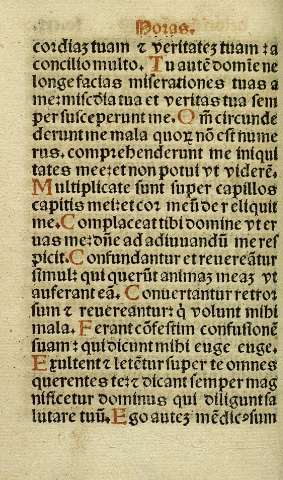 Horas.
cordiaz tuam ⁊ veritatez tuam: a
concilio multo. Tu autē domīe ne
longe facias miserationes tuas a
me: misc̄dia tua et veritas tua sem
per susceperunt me. Qm̄ circunde
derunt me mala quoꝝ nō est nume
rus. comprehenderunt me iniqui
tates mee: et non potui vt viderē.
Multiplicate sunt super capillos
capitis mei: et cor meū dereliquit
me. Complaceat tibi domine vt er
uas me: dn̄e ad adiuuandū me res
picit. Confundantur et reuereātur
simul: qui querūt animaz meaz vt
auferant eā. Conuertantur retror
sum ⁊ reuereantur: q̄ volunt mihi
mala. Ferant cōfestim confusionē
suam: qui dicunt mihi euge euge.
Exultent ⁊ letētur super te omnes
querentes te: ⁊ dicant semper mag
nificetur dominus qui diligunt sa
lutare tuū. Ego autez mēdicꝰ sum